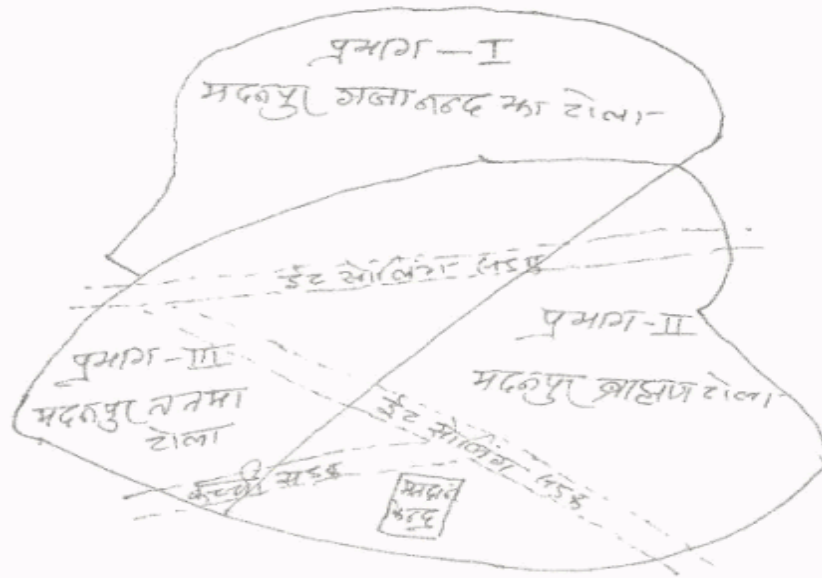 प्रभाग - I
मदनपुर गजानन्द झा टोला
ईट सोलिंग सडक
प्रभाग - II
मदनपुर ब्राह्मण टोला
प्रभाग - III
मदनपुर ततमा
टोला
ईट सोलिंग सडक
कच्ची सडक
मतदान
केन्द्र